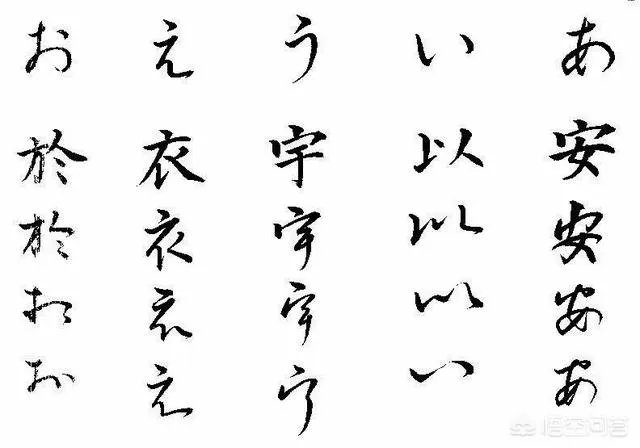 お え う い あ
於 衣 宇 以 安
於 衣 宇 以 安
お 衣 宇 以 安
お え う い あ
悟空问答